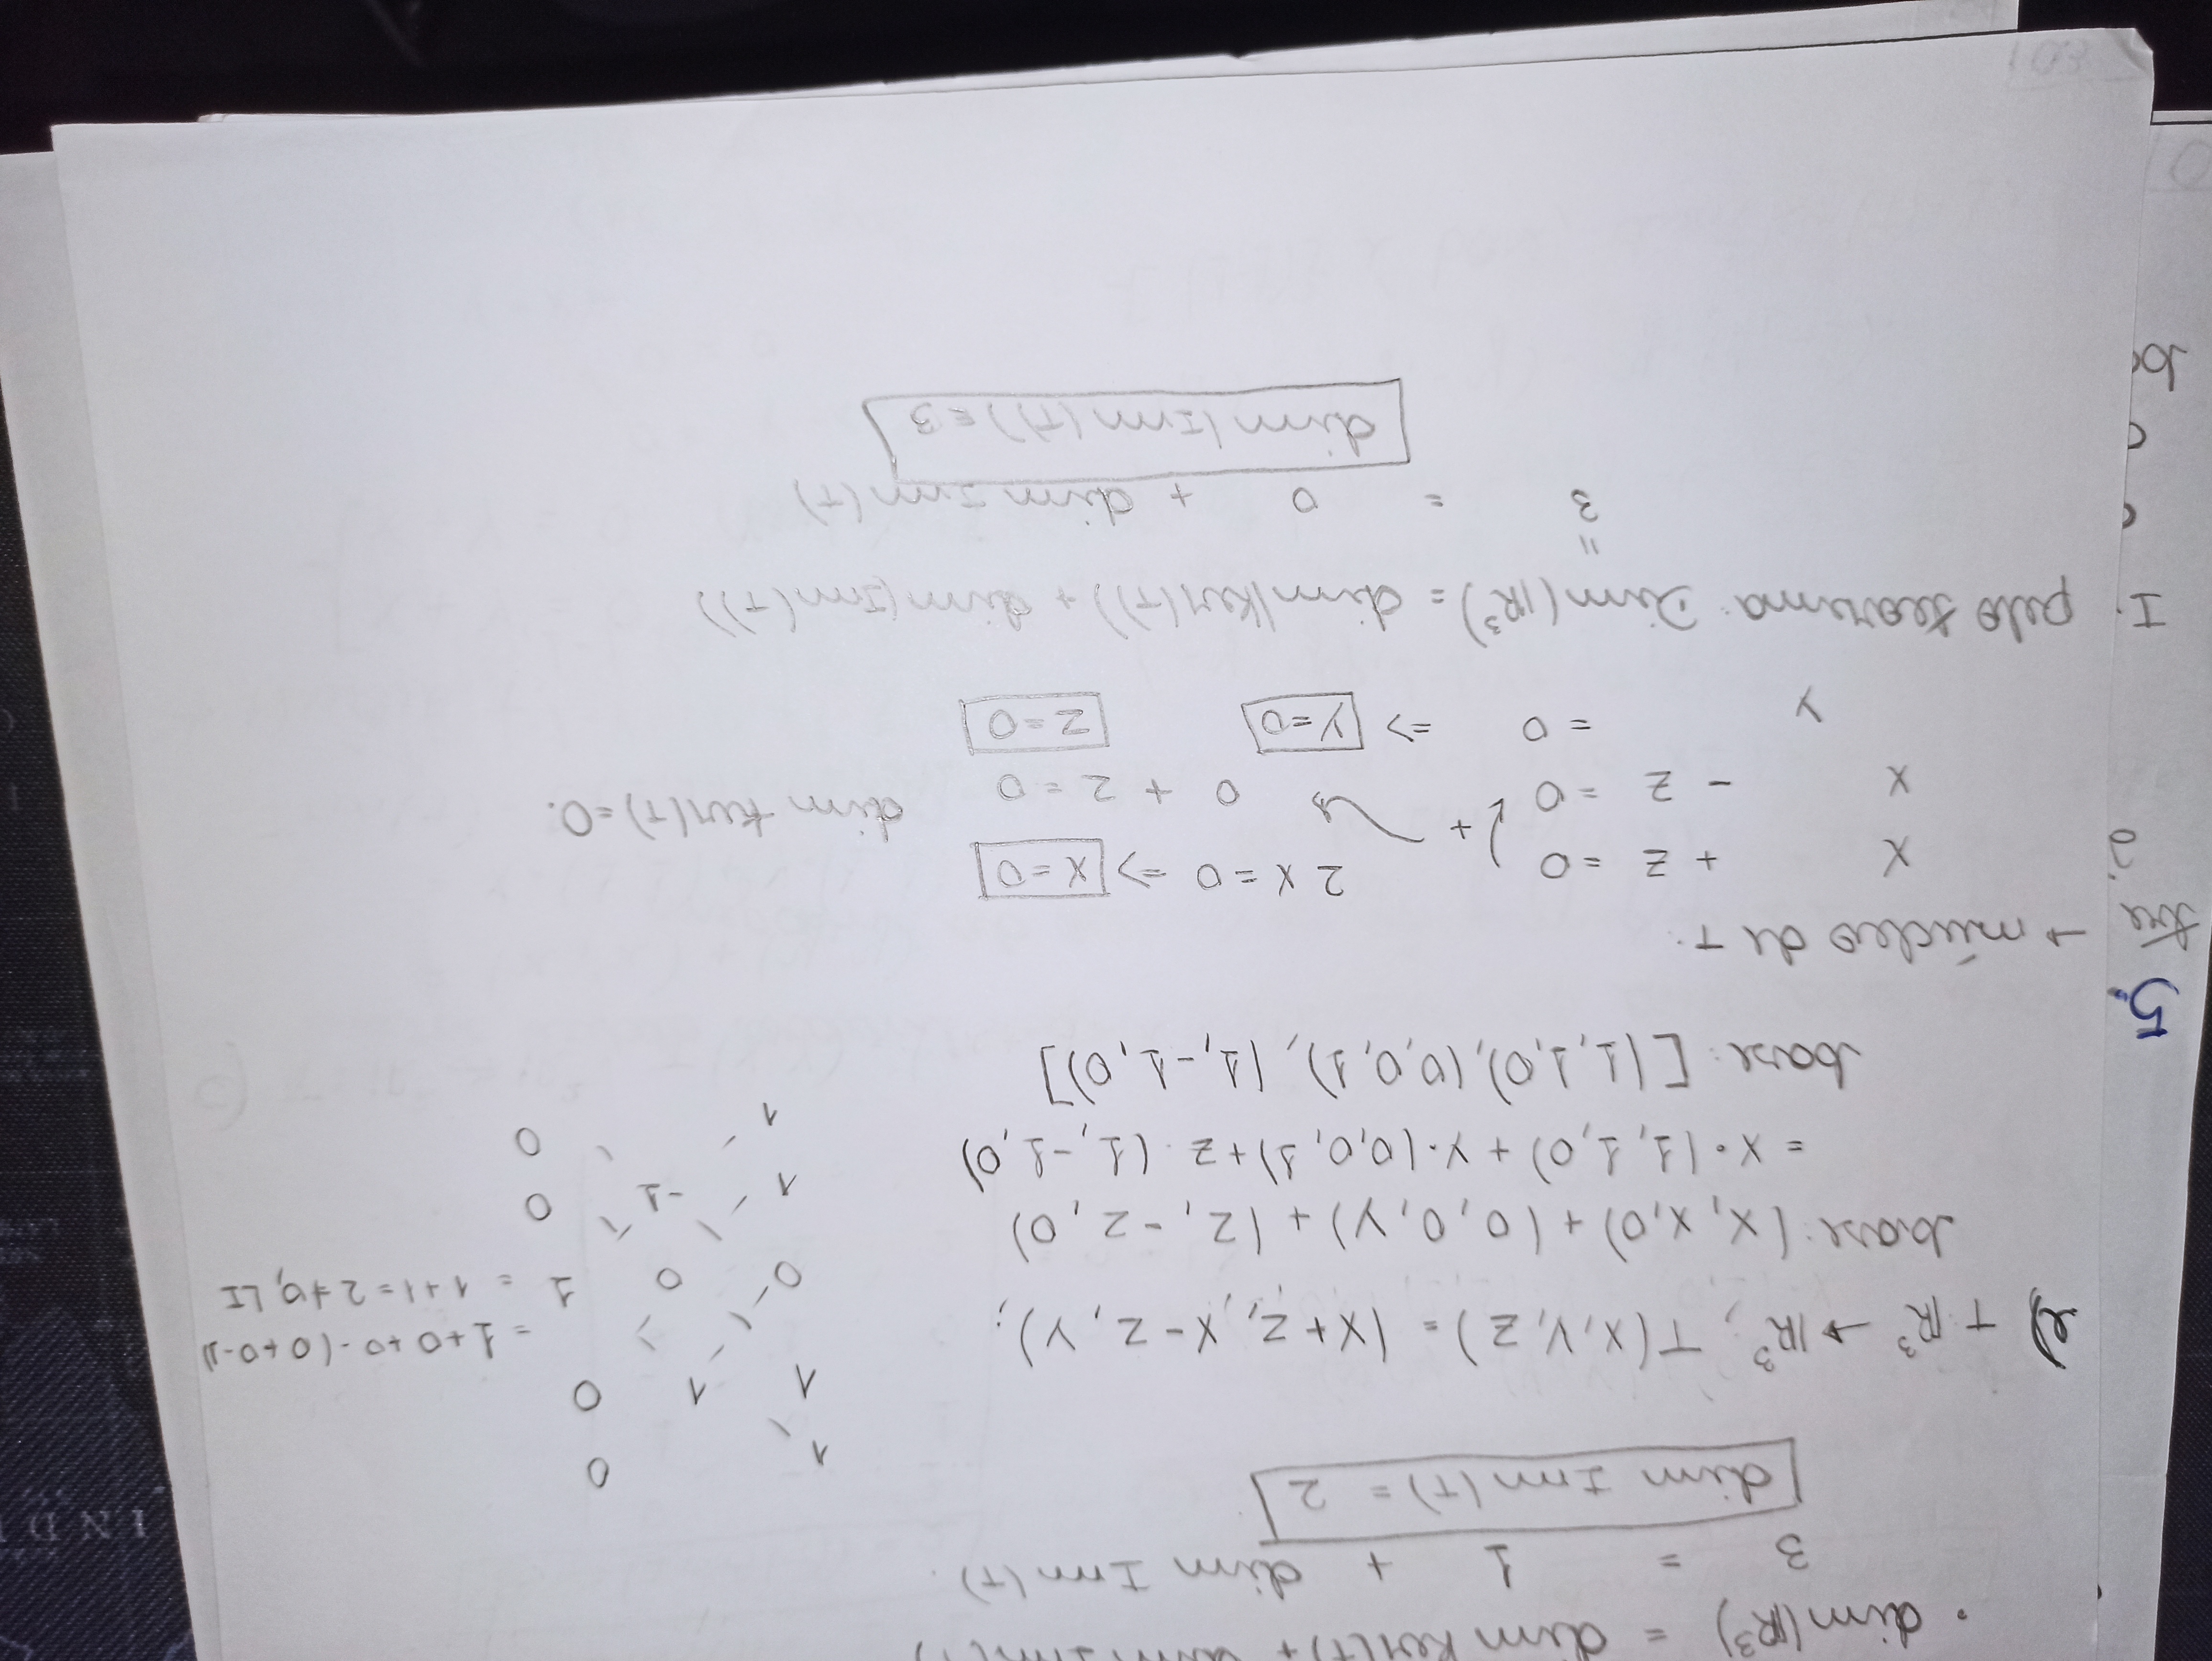 . dim(ℝ³) = dim Ker(T) + dim Im(T)
3 = 1 + dim Im(T).
dim Im(T) = 2
e) T:ℝ³ → ℝ³, T(x, y, z) = (x+z, x-z, y);
base: (x, x, 0) + (0, 0, y) + (z, -z, 0)
= x·(1, 1, 0) + y·(0, 0, 1) + z·(1, -1, 0)
base: [(1, 1, 0), (0, 0, 1), (1, -1, 0)]
1 0
1 1 0
= 1+0+0-(0+0-1)
0 0 1 = 1+1 = 2 ≠ 0, LI
1 -1 0
1 0
5.
tre
→ núcleo de T:
x + z = 0
2x = 0 => x=0
+
x - z = 0
0 + z = 0
dim ker(T) = 0.
y = 0 => y=0
z=0
I.
pelo teorema: Dim(ℝ³) = dim(Ker(T)) + dim(Im(T))
"
3 = 0 + dim Im(T)
dim(Im(T)) = 3
IND